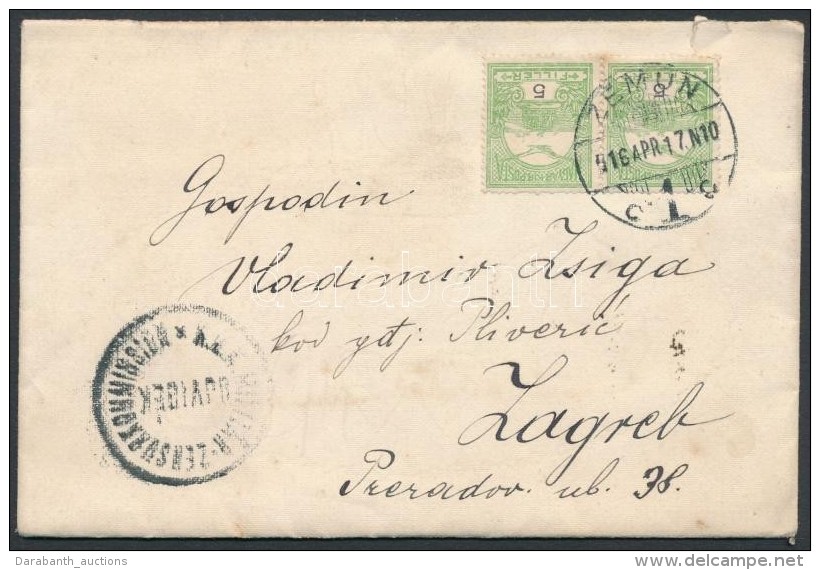 5
FILLER
MAGYAR KIR. POSTA
5
ZEMUN
916 APR. 17. N10
1
Gospodin
Vladimir Zsiga
kod gdj. Pliverić
Zagreb
Preradov. ul. 38.
ZENSURKOMMISSION
ÚJVIDÉK
darabanth
Darabanth_auctions
www.delcampe.net